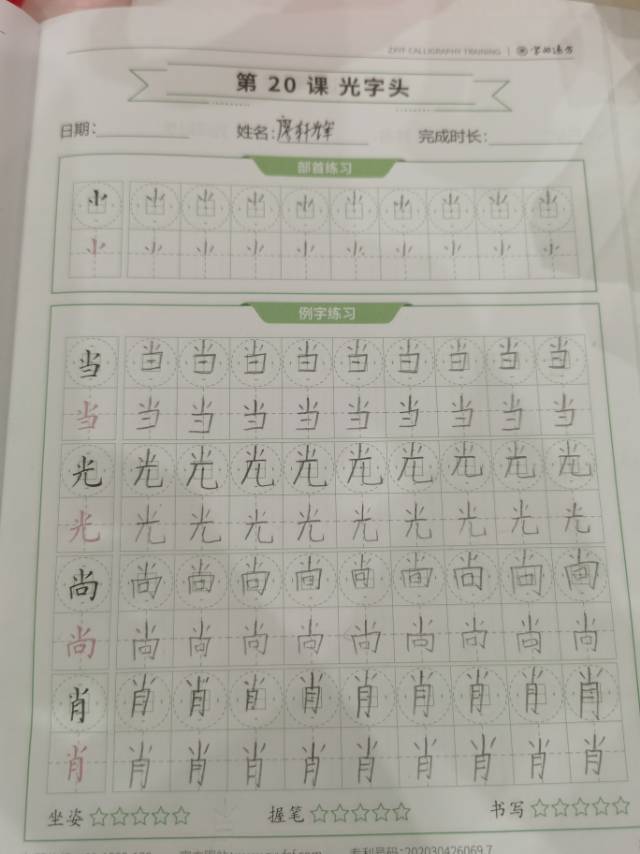 ZXYF CALLIGRAPHY TRAINING
第 20 课 光字头
日期: 姓名: 完成时长:
部首练习
⺌ ⺌ ⺌ ⺌ ⺌ ⺌ ⺌ ⺌ ⺌ ⺌
⺌ ⺌ ⺌ ⺌ ⺌ ⺌ ⺌ ⺌ ⺌ ⺌
例字练习
当 当 当 当 当 当 当 当 当 当
当 当 当 当 当 当 当 当 当 当
光 光 光 光 光 光 光 光 光 光
光 光 光 光 光 光 光 光 光 光
尚 尚 尚 尚 尚 尚 尚 尚 尚 尚
尚 尚 尚 尚 尚 尚 尚 尚 尚 尚
肖 肖 肖 肖 肖 肖 肖 肖 肖 肖
肖 肖 肖 肖 肖 肖 肖 肖 肖 肖
坐姿 ☆☆☆☆☆ 握笔 ☆☆☆☆☆ 书写 ☆☆☆☆☆
专利号码:202030426069.7